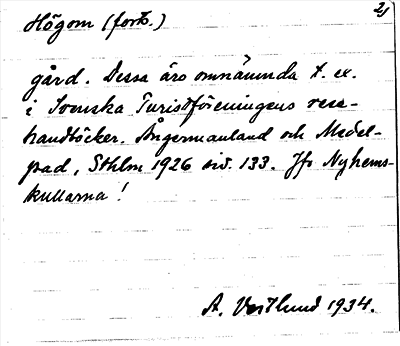 Högom (forts.) 2)
gård. Dessa äro omnämnda t. ex.
i Svenska Turistföreningens rese-
handböcker. Ångermanland och Medel-
pad, Sthlm 1926 sid. 133. Jfr Nyhems-
kullarna!
A. Vestlund 1934.